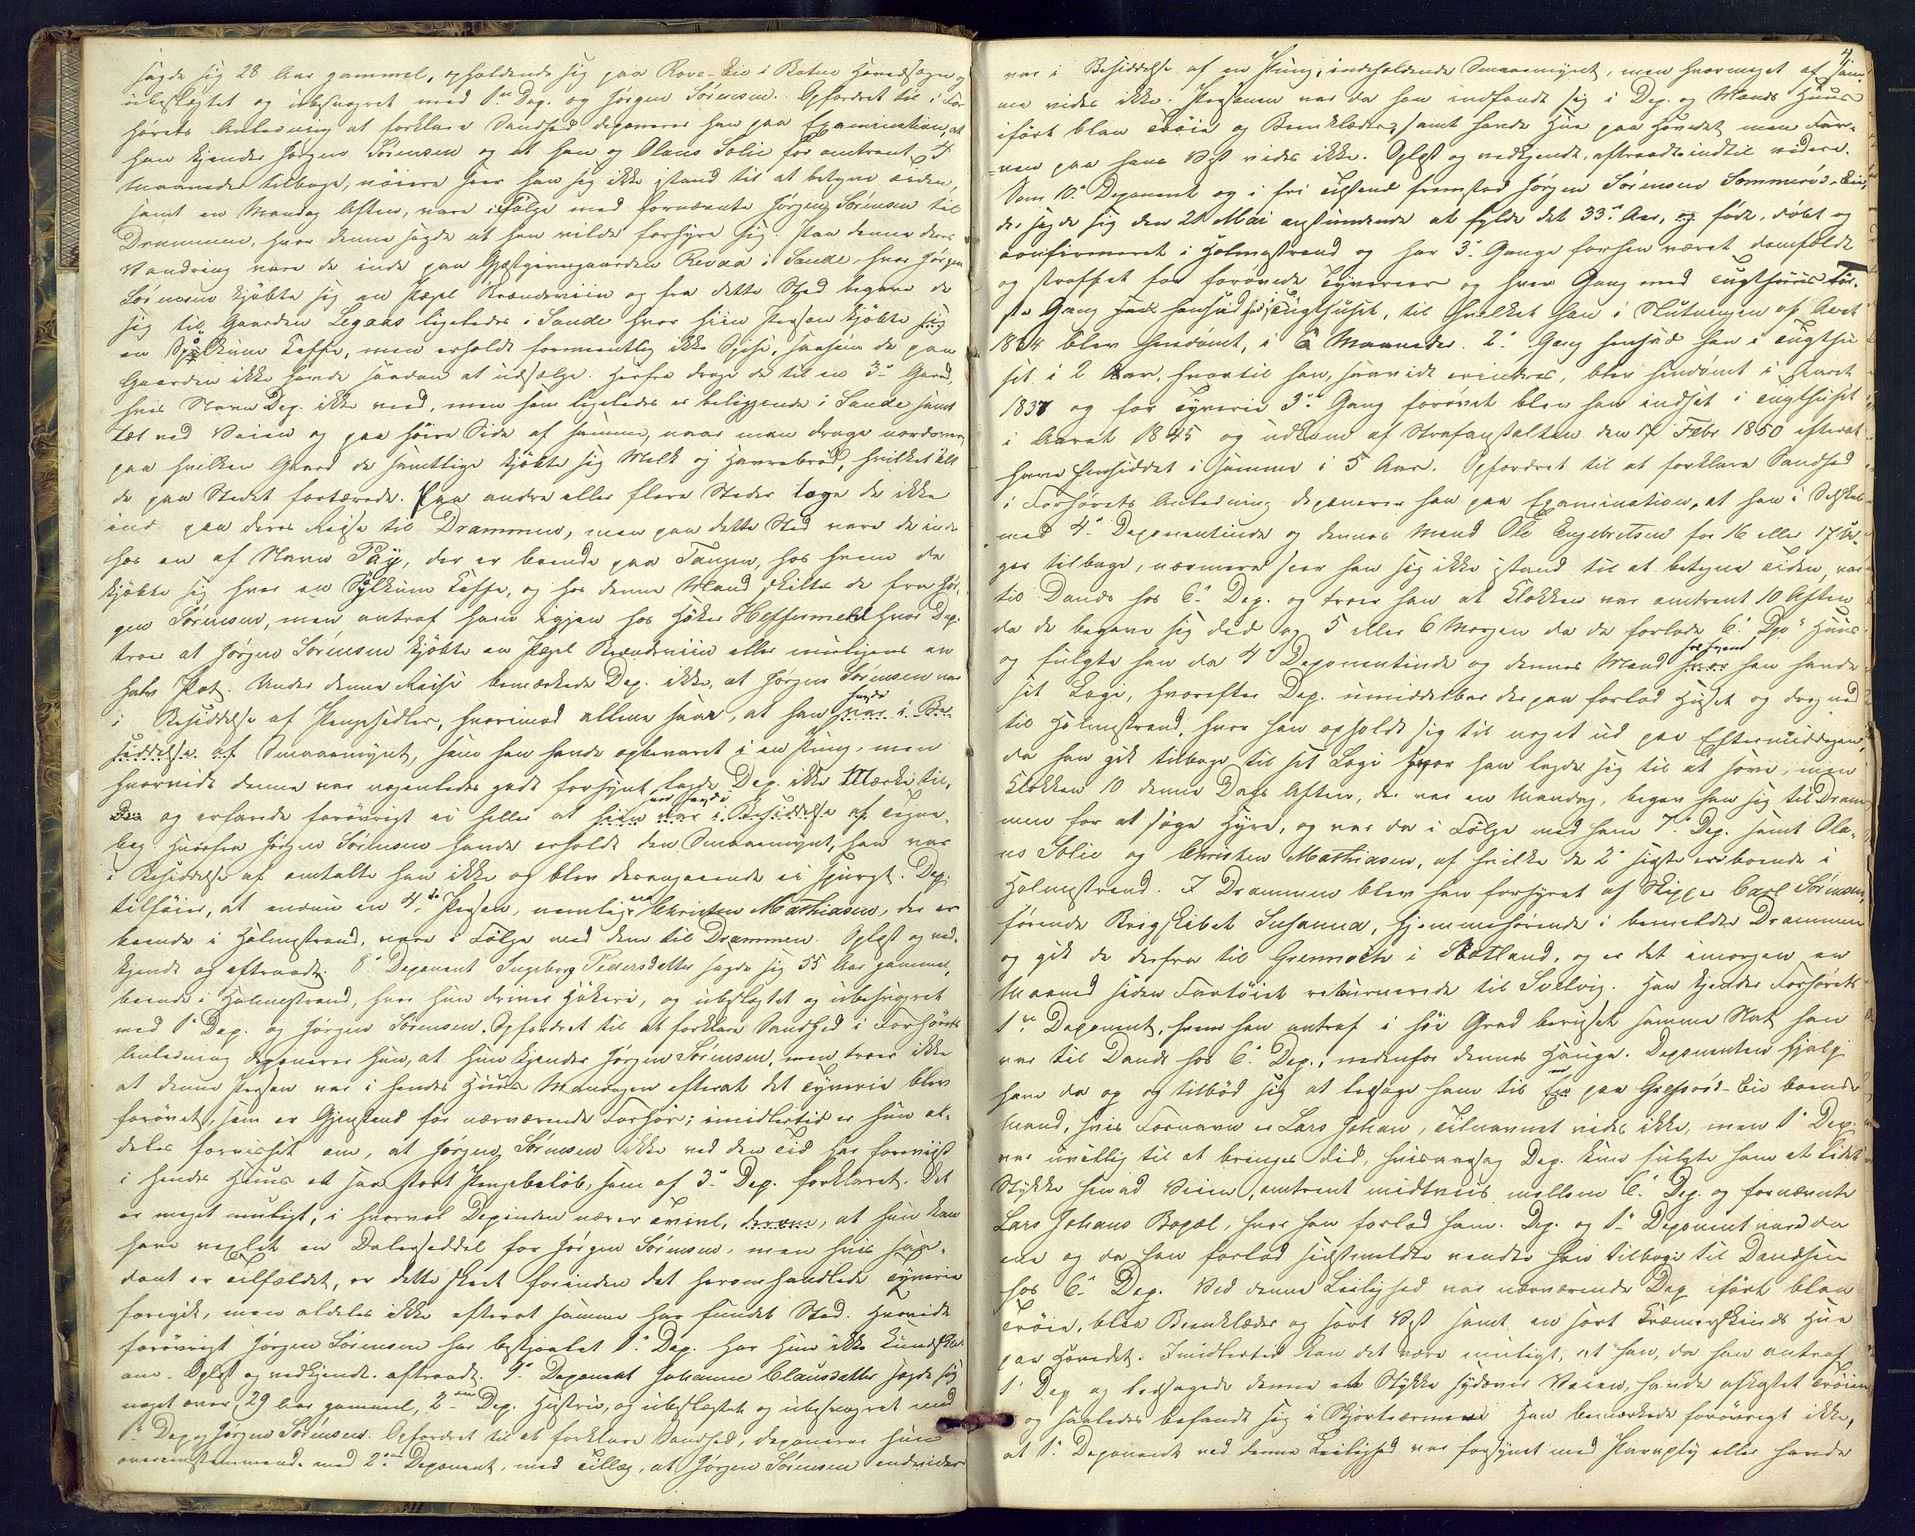 sagde sig 28 Aar gammel, opholdende sig paa Rove-Eie i Botne Hovedsogn og
ubeslægtet og ubesvogret med 1ste Dep. og Jørgen Sørensen. Opfordret til i For-
hørets Anledning at forklare Sandhed deponerer han paa Examination, at
han kjender Jørgen Sørensen og at han og Olaus Solie for omtrent 4
Maaneder tilbage, nøiere seer han sig ikke istand til at betegne Tiden,
samt en Mandag Aften, vare i Følge med fornævnte Jørgen Sørensen til
Drammen, hvor denne sagde at han vilde forhyre sig. Paa denne deres
Vandring vare de inde paa Gjæstgivergaarden Revaa i Sande, hvor Jørgen
Sørensen kjøbte sig en Pægel Brændeviin og fra dette Sted begave de
sig til Gaarden Legaas ligeledes i Sande hvor hiin Person kjøbte sig
en Spølkum Kaffe, men erholdt formeentlig ikke Spise, saasom de paa
Gaarden ikke havde saadan at udsælge. Herfra droge de til en 3die Gaard,
hvis Navn Dep. ikke veed, men som ligeledes er beliggende i Sande samt
tæt ved Veien og paa høire Side af samme, naar man drage nordover,
paa hvilken Gaard de samtlige kjøbte sig Melk og Havrebrød, hvilket alt
de paa Stedet fortærede. Paa andre eller flere Steder toge de ikke
ind paa deres Reise til Drammen, men paa dette Sted vare de inde
hos en af Navn Pay, der er boende paa Tangen, hos hvem de
kjøbte sig hver en Spølkum Kaffe, og hos denne Mand skiltes de fra Jør-
gen Sørensen, men antraf ham igjen hos Høker Heffermehl hvor Dep.
troer at Jørgen Sørensen kjøbte en Pægel Brændeviin eller muligens en
halv Pot. Under denne Reise bemærkede Dep. ikke, at Jørgen Sørensen var
i Besiddelse af Pengesedler, hvorimod allene saae, at han havde var i Be-
siddelse af Smaaemynt, som han havde opbevaret i en Pung, men
hvorvidt denne var nogenledes godt forsynt lagde Dep. ikke Mærke til.
Den og erfarede forøvrigt ei heller at hiin var i Besiddelse af Tegne-
bog. Hvorfra Jørgen Sørensen havde erholdt den Smaaemynt, han var
i Besiddelse af omtalte han ikke og blev derangaaende ei spurgt. Dep.
tilføier, at endnu en 4de Person, nemlig en Christen Mathiasen, der er
boende i Holmestrand, vare i Følge med dem til Drammen. Oplæst og ved-
kjendt og aftraadt. 8de Deponent Ingeborg Pedersdatter sagde sig 55 Aar gammel,
boende i Holmestrand, hvor hun driver Høkeri, og ubeslægtet og ubesvogret
med 1ste Dep. og Jørgen Sørensen. Opfordret til at forklare Sandhed i Forhørets
Anledning deponerer hun, at hun kjender Jørgen Sørensen, men troer ikke
at denne Person var i hendes Huus Mandagen efterat det Tyverie blev
forøvet, som er Gjenstand for nærværende Forhør; imidlertid er hun al-
deles forvisset om, at Jørgen Sørensen ikke ved den Tid har foreviist
i hendes Huus et saa stort Pengebeløb, som af 3die Dep. forklaret. Det
er meget muligt, i hvorvel Depinden nærer Tvivl, derom, at hun kan
have vexlet en Dalerseddel for Jørgen Sørensen, men hvis saa-
dant er Tilfældet, er dette skeet forinden det heromhandlede Tyverie
foregik, men aldeles ikke efterat samme har fundet Sted. Hvorvidt
forøvrigt Jørgen Sørensen har bestjaalet 1ste Dep. har hun ikke Kundskab
om. Oplæst og vedkjendt. aftraadt. 9de Deponent Johanne Clausdatter sagde sig
noget over 29 Aar gammel, 2den Dep. Hustru, og ubeslægtet og ubesvogret med
1ste Dep og Jørgen Sørensen. Opfordret til at forklare Sandhed, deponerer hun
overensstemmende med 2den Deponent, med Tillæg, at Jørgen Sørensen endvidere
4
var i Besiddelse af en Pung, indeholdende Smaaemynt, men hvormeget af sam-
me vides ikke. Personen var da han indfandt sig i Dep. og Mands Huus
iført blaa Trøie og Beenklæder, samt havde Hue paa Hovedet men Far-
ven paa hans Vest vides ikke. Oplæst og vedkjendt, aftraadt indtil videre.
Som 10de Deponent og i fri Tilstand fremstod Jørgen Sørensen Sommerød-Eie,
der sagde sig den 21 Mai anstundende at fylde det 33te Aar, og føde, døbt og
confirmeret i Holmestrand og har 3de Gange forhen været domfældt
og straffet for forøvede Tyverier og hver Gang med Tugthuus. Før-
ste Gang sad hensad i Tugthuset, til hvilket han i Slutningen af Aaret
1834 blev hendømt, i 6 Maaneder. 2den Gang hensad han i Tugthu-
set i 2 Aar, hvortil han, saavidt erindres, blev hendømt i Aaret
1837 og for Tyverie 3die Gang forøvet blev han indsat i Tugthuset
i Aaret 1845 og udkom af Strafanstalten den 17 Febr 1850 efterat
have hensiddet i samme i 5 Aar. Opfordret til at forklare Sandhed
i Forhørets Anledning deponerer han paa Examination, at han i Selskab
med 4de Deponentinde og dennes Mand Ole Engebretsen for 16 eller 17 U-
ger tilbage, nærmere seer han sig ikke istand til at betegne Tiden, var
til Dands hos 6te Dep. og troer han at Klokken var omtrent 10 Aften
da de begave sig did og 5 eller 6 Morgen da de forlode 6te Dps Huus
og fulgte han da 4de Deponentinde og dennes Mand hos hvem han havde
sit Logi, hvorefter Dep. umiddelbar derpaa forlod Huset og drog ned
til Holmestrand, hvor han opholdt sig til noget ud paa Eftermiddagen,
da han gik tilbage til sit Logi hvor han lagde sig til at sove, men
Klokken 10 denne Dags Aften, der var en Mandag, begav han sig til Dram-
men for at søge Hyre, og var da i Følge med ham 7de Dep. samt Ola-
us Solie og Christen Mathiasen, af hvilke de 2de sidste ere boende i
Holmestrand. I Drammen blev han forhyret af Skipper Carl Sørensen,
førende Brigskibet Susanna, hjemmehørende i bemeldte Drammen
og gik de derfra til Grennock i Skotland, og er det imorgen en
Maaned siden Fartøiet returnerede til Svelvig. Han kjender Forhørets
1ste Deponent, hvem han antraf i høi Grad beruset samme Nat han
var til Dands hos 6te Dep., nedenfor dennes Hauge. Deponenten hjalp
ham da op og tilbød sig at ledsage ham til en paa Grefsrød-Eie boende
Mand, hvis Fornavn er Lars Johan, Tilnavnet vides ikke, men 1ste Dep.
var uvillig til at bringes did, hvisaarsag Dep. kun fulgte ham et lidet
Stykke henad Veien, omtrent midtveis mellem 6te Dep. og fornævnte
Lars Johans Bopæl, hvor han forlod ham. Dep. og 1ste Deponent vare da
ene og da han forlod sidstmeldte vendte han tilbage til Dandsen
hos 6te Dep. Ved denne Leilighed var nærværende Dep iført blaa
Trøie, blaa Beenklæder og sort Vest samt en sort Kræmerskinds Hue
paa Hovedet. Imidlertid kan det være muligt, at han, da han antraf
1ste Dep og ledsagede denne et Stykke sydover Veien, havde afkastet Trøien
og saaledes befandt sig i Skjorteærmene. Han bemærkede forøvrigt ikke,
at 1ste Deponent ved denne Leilighed var forsynet med Paraply eller havde